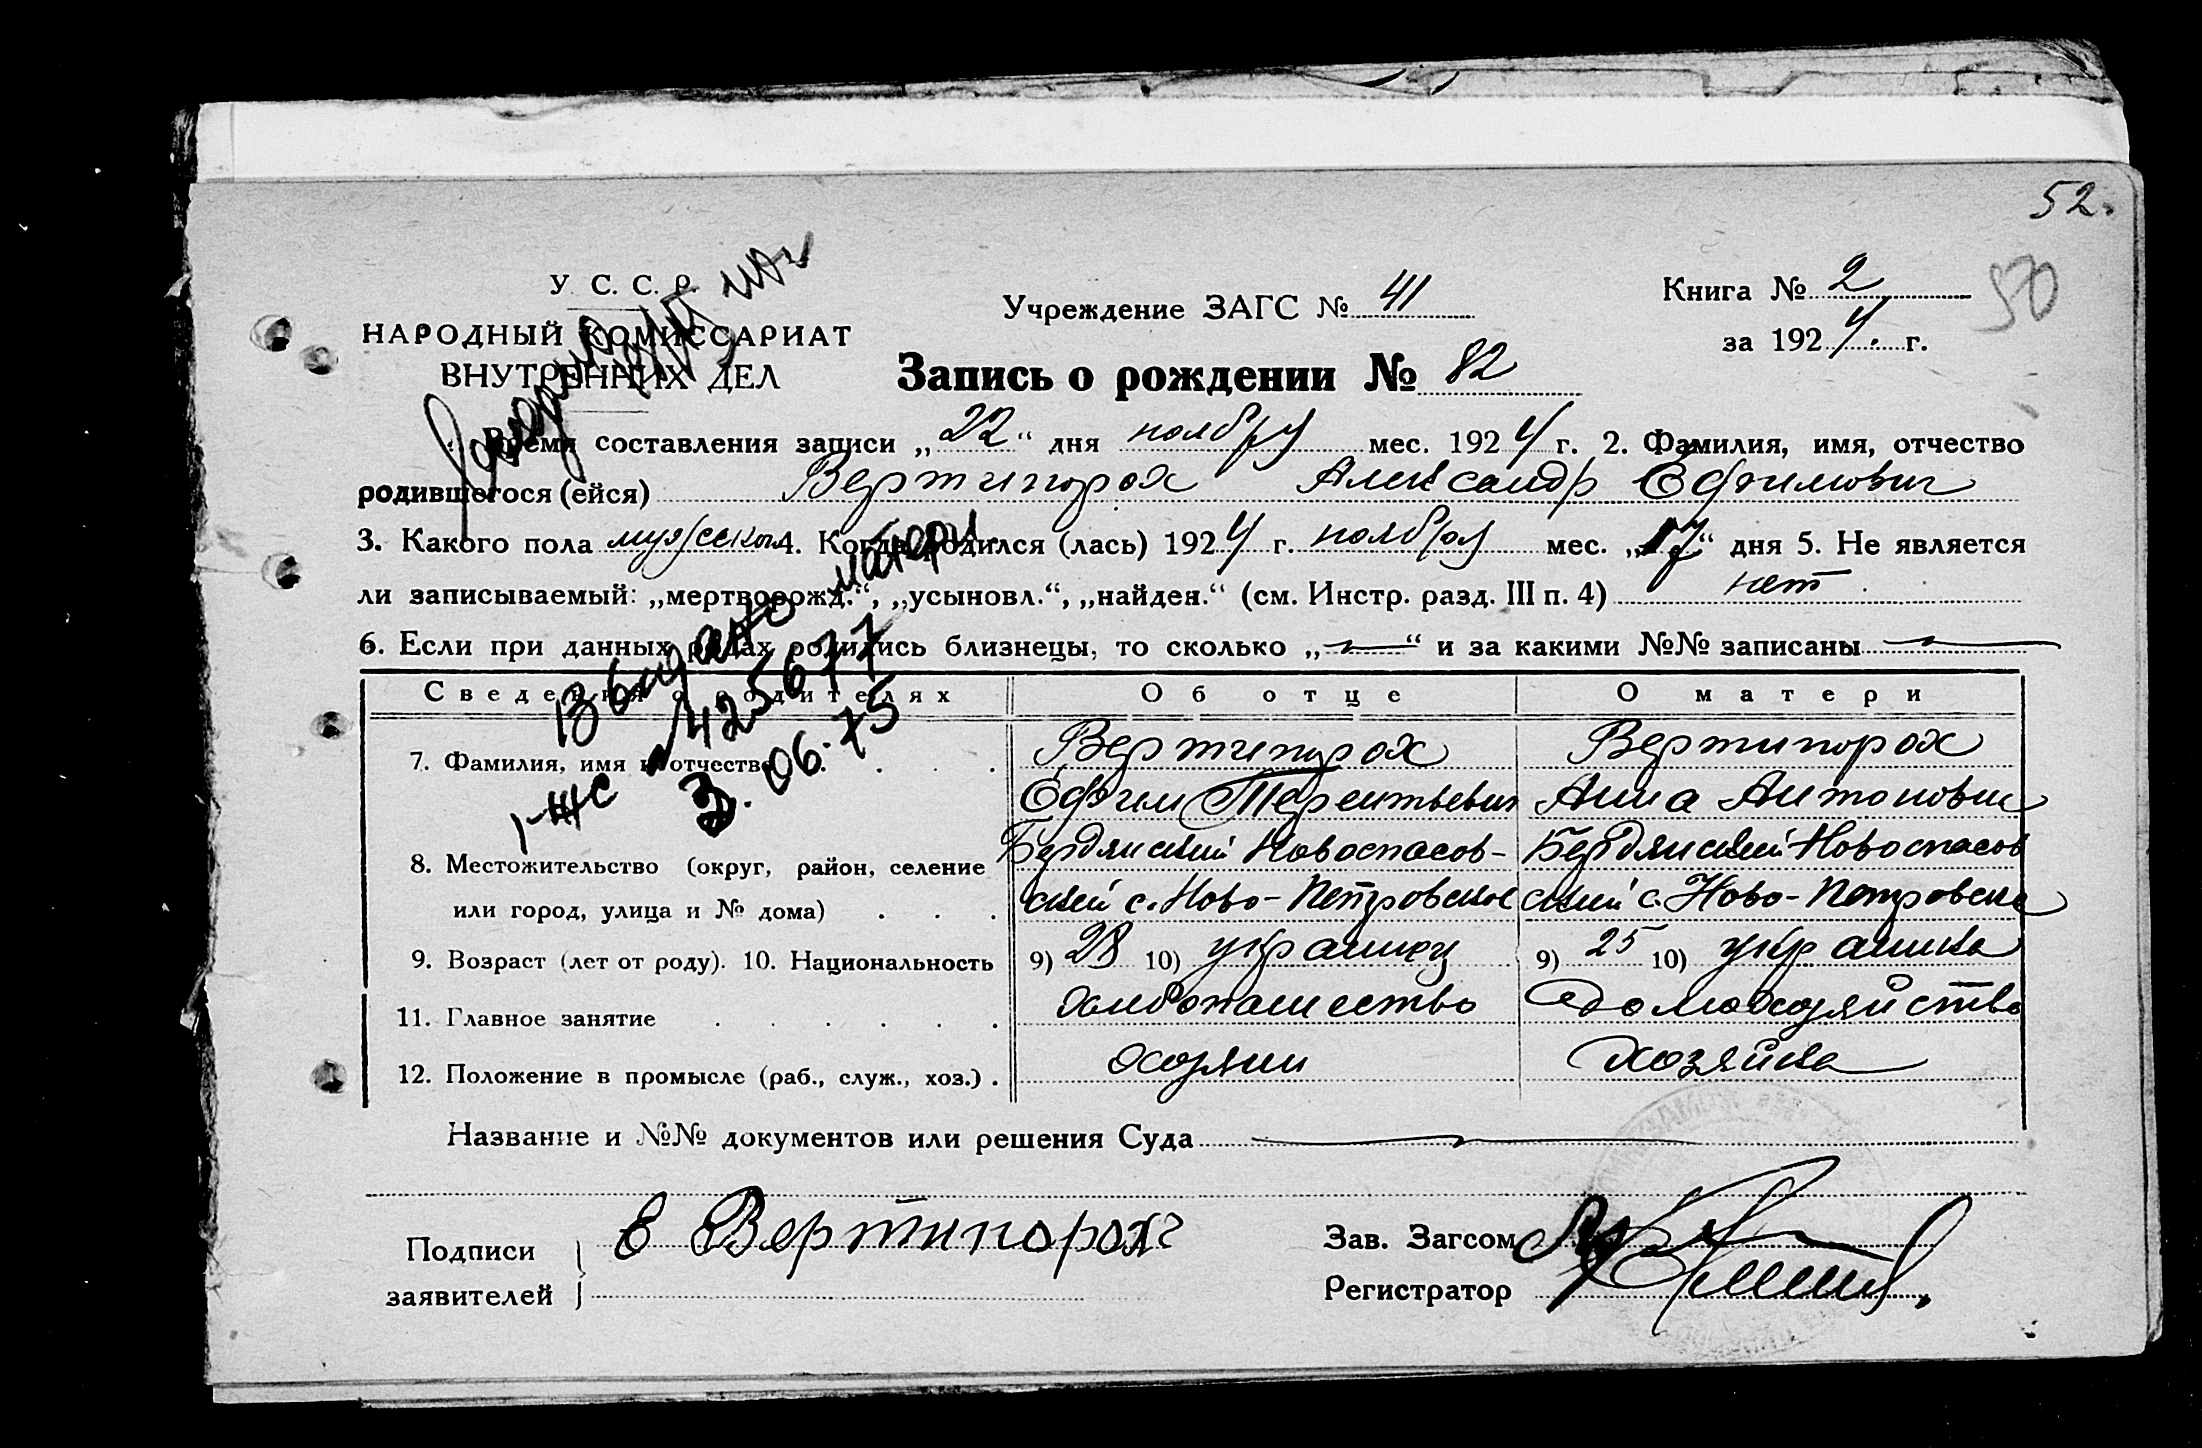 52.
50
У. С. С. Р.
НАРОДНЫЙ КОМИССАРИАТ
ВНУТРЕННИХ ДЕЛ
Учреждение ЗАГС № 41
Книга № 2
за 1924. г.
Запись о рождении № 82
Время составления записи „22“ дня ноября мес. 1924 г. 2. Фамилия, имя, отчество
родившегося (ейся) Вертипорох Александр Ефимович
3. Какого пола мужеского 4. Когда родился (лась) 1924 г. ноября мес. „17“ дня 5. Не является
ли записываемый: „мертворожд.“, „усыновл.“, „найден.“ (см. Инстр. разд. III п. 4) нет
6. Если при данных родах родились близнецы, то сколько „—“ и за какими №№ записаны —
Сведения о родителях Об отце О матери
7. Фамилия, имя и отчество . . . . Вертипорох Вертипорох
Ефим Терентьевич Анна Антоновна
8. Местожительство (округ, район, селение Бердянский Новоспасов- Бердянский Новоспасов
или город, улица и № дома) . . . ский с. Ново-Петровское ский с. Ново-Петровска
9. Возраст (лет от роду). 10. Национальность 9) 28 10) украинец 9) 25 10) украинка
11. Главное занятие . . . . . . хлебопашество домохозяйство
12. Положение в промысле (раб., служ., хоз.) . хозяин хозяйка
Название и №№ документов или решения Суда —
Подписи
заявителей
Е Вертипорох
Зав. Загсом
Регистратор
видано матери
1-ЖС № 425677
3.06.75